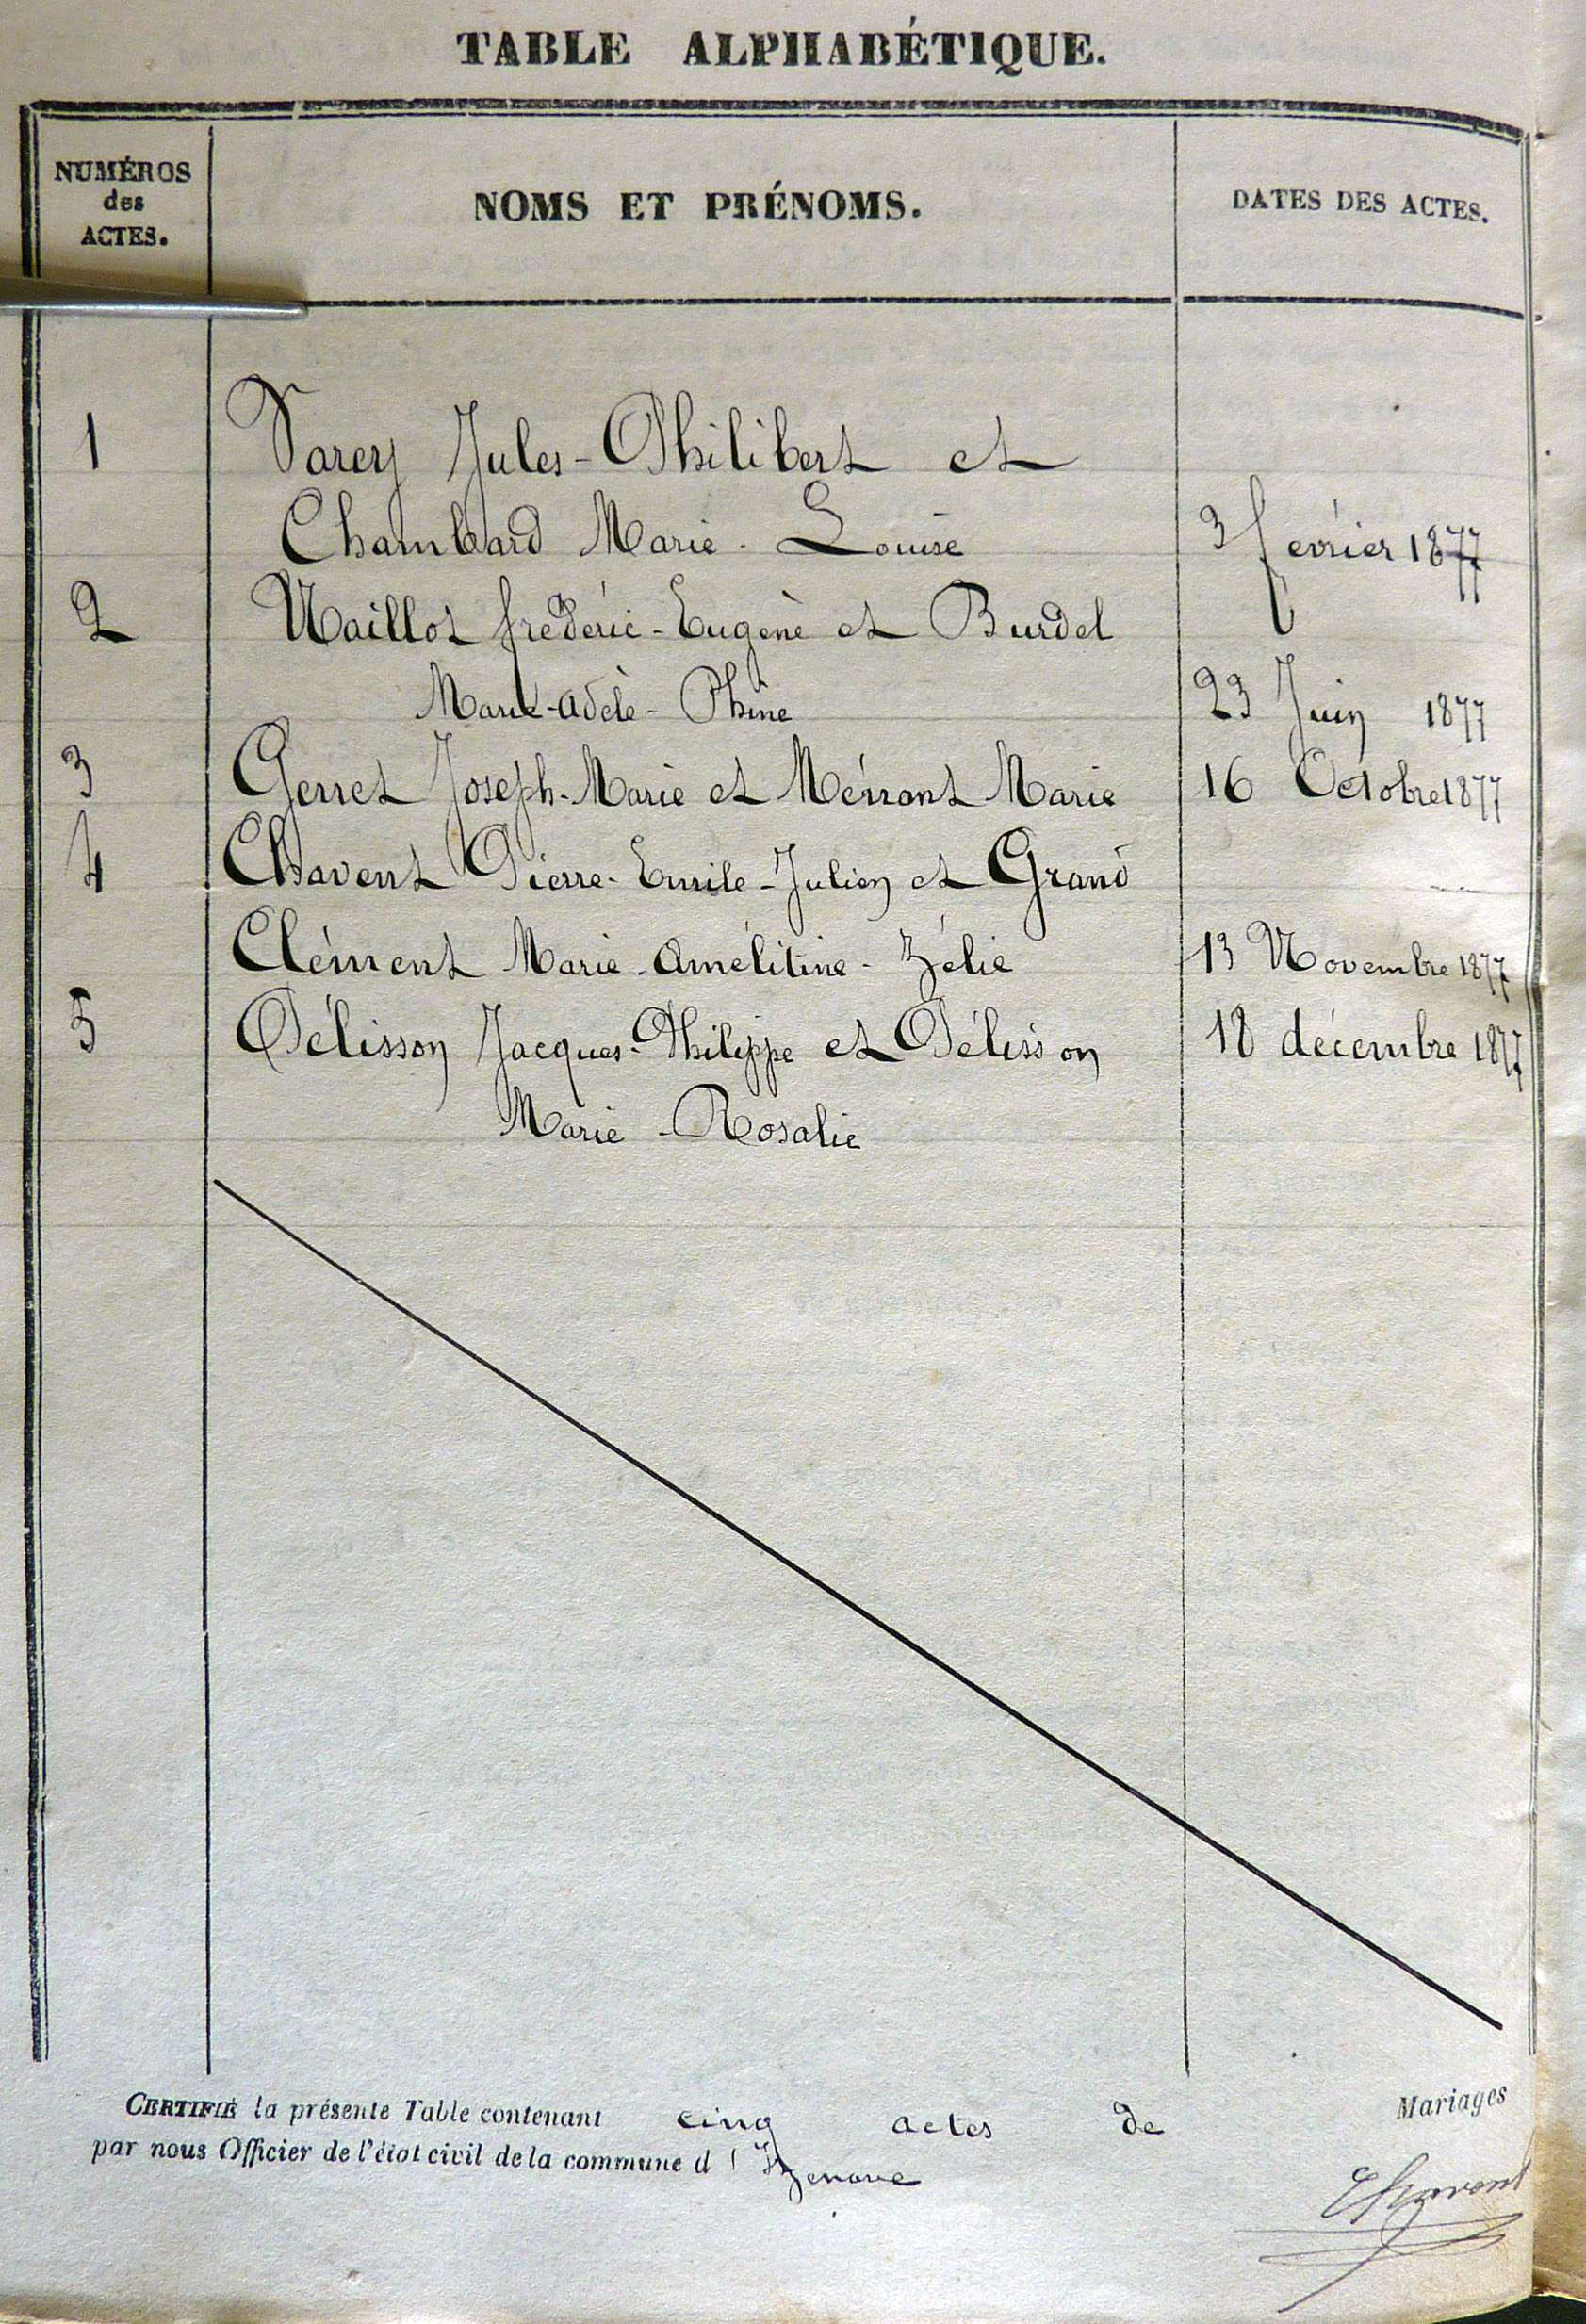 TABLE ALPHABÉTIQUE.
NUMÉROS
des
ACTES.
NOMS ET PRÉNOMS.
DATES DES ACTES.
1 Varey Jules-Philibert et
Chambard Marie-Louise 3 février 1877
2 Maillot fréderic-Eugène et Burdel
Marie-adèle-Phine 23 Juin 1877
3 Gerret Joseph-Marie et Mérront Marie 16 Octobre 1877
4 Chavent Pierre-Emile-Julien et Grand
Clément Marie-Amélitine-Zélie 13 Novembre 1877
5 Pélisson Jacques-Philippe et Pélisson 18 décembre 1877
Marie-Rosalie
CERTIFIÉ la présente Table contenant cinq actes de Mariages
par nous Officier de l'état civil de la commune d'Izenave
Chavent